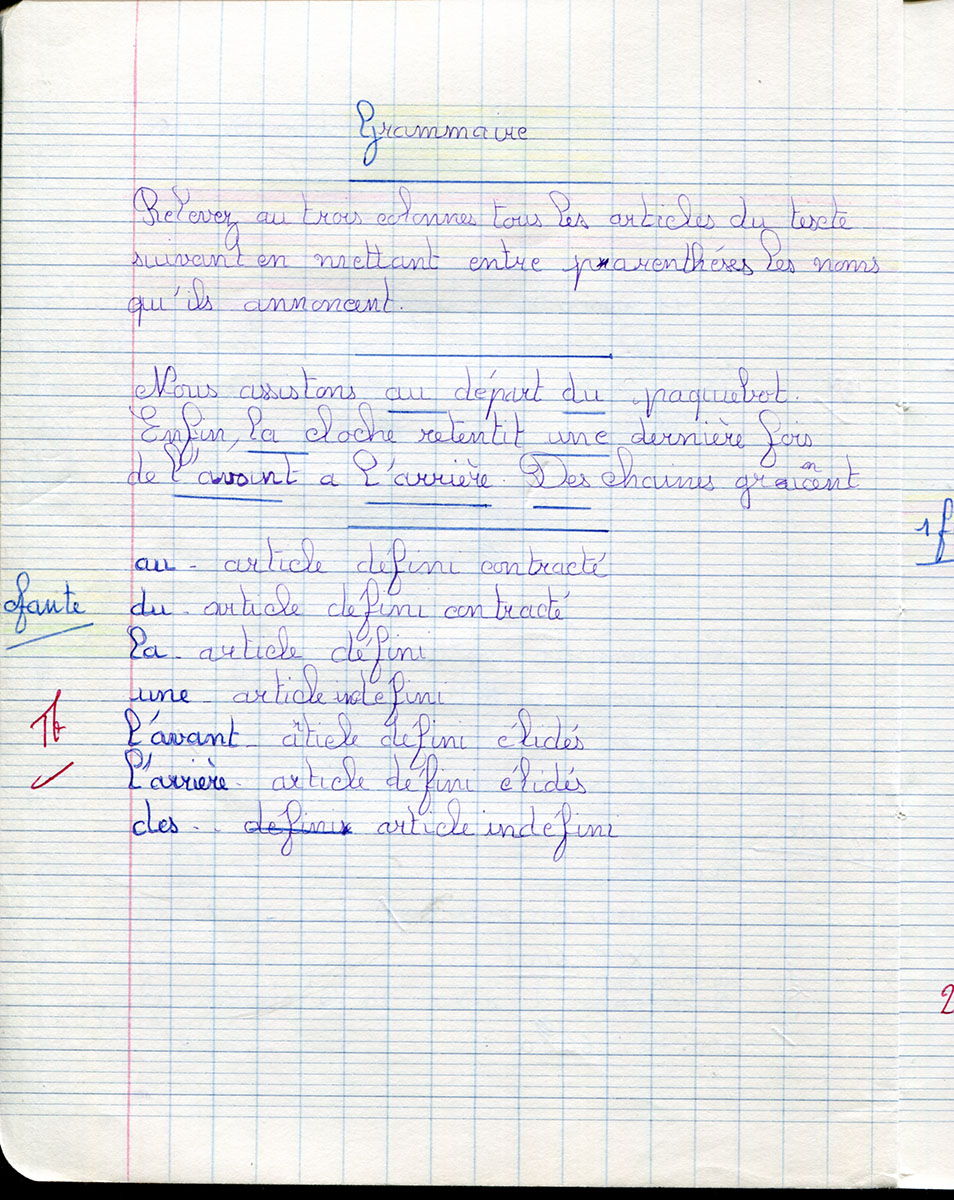 Grammaire
Relevez au trois colonnes tous les articles du texte
suivant en mettant entre parenthéses les noms
qu'ils annoncent.
Nous assistons au départ du paquebot.
Enfin, la cloche retentit une dernière fois
de l'avant a l'arrière. Des chaines
1f
au - article défini contracté
faute du - article défini contracté
la - article défini
une article indefini
1f l'avant - article défini élidés
l'arrière - article défini élidés
des - definir article indéfini
2